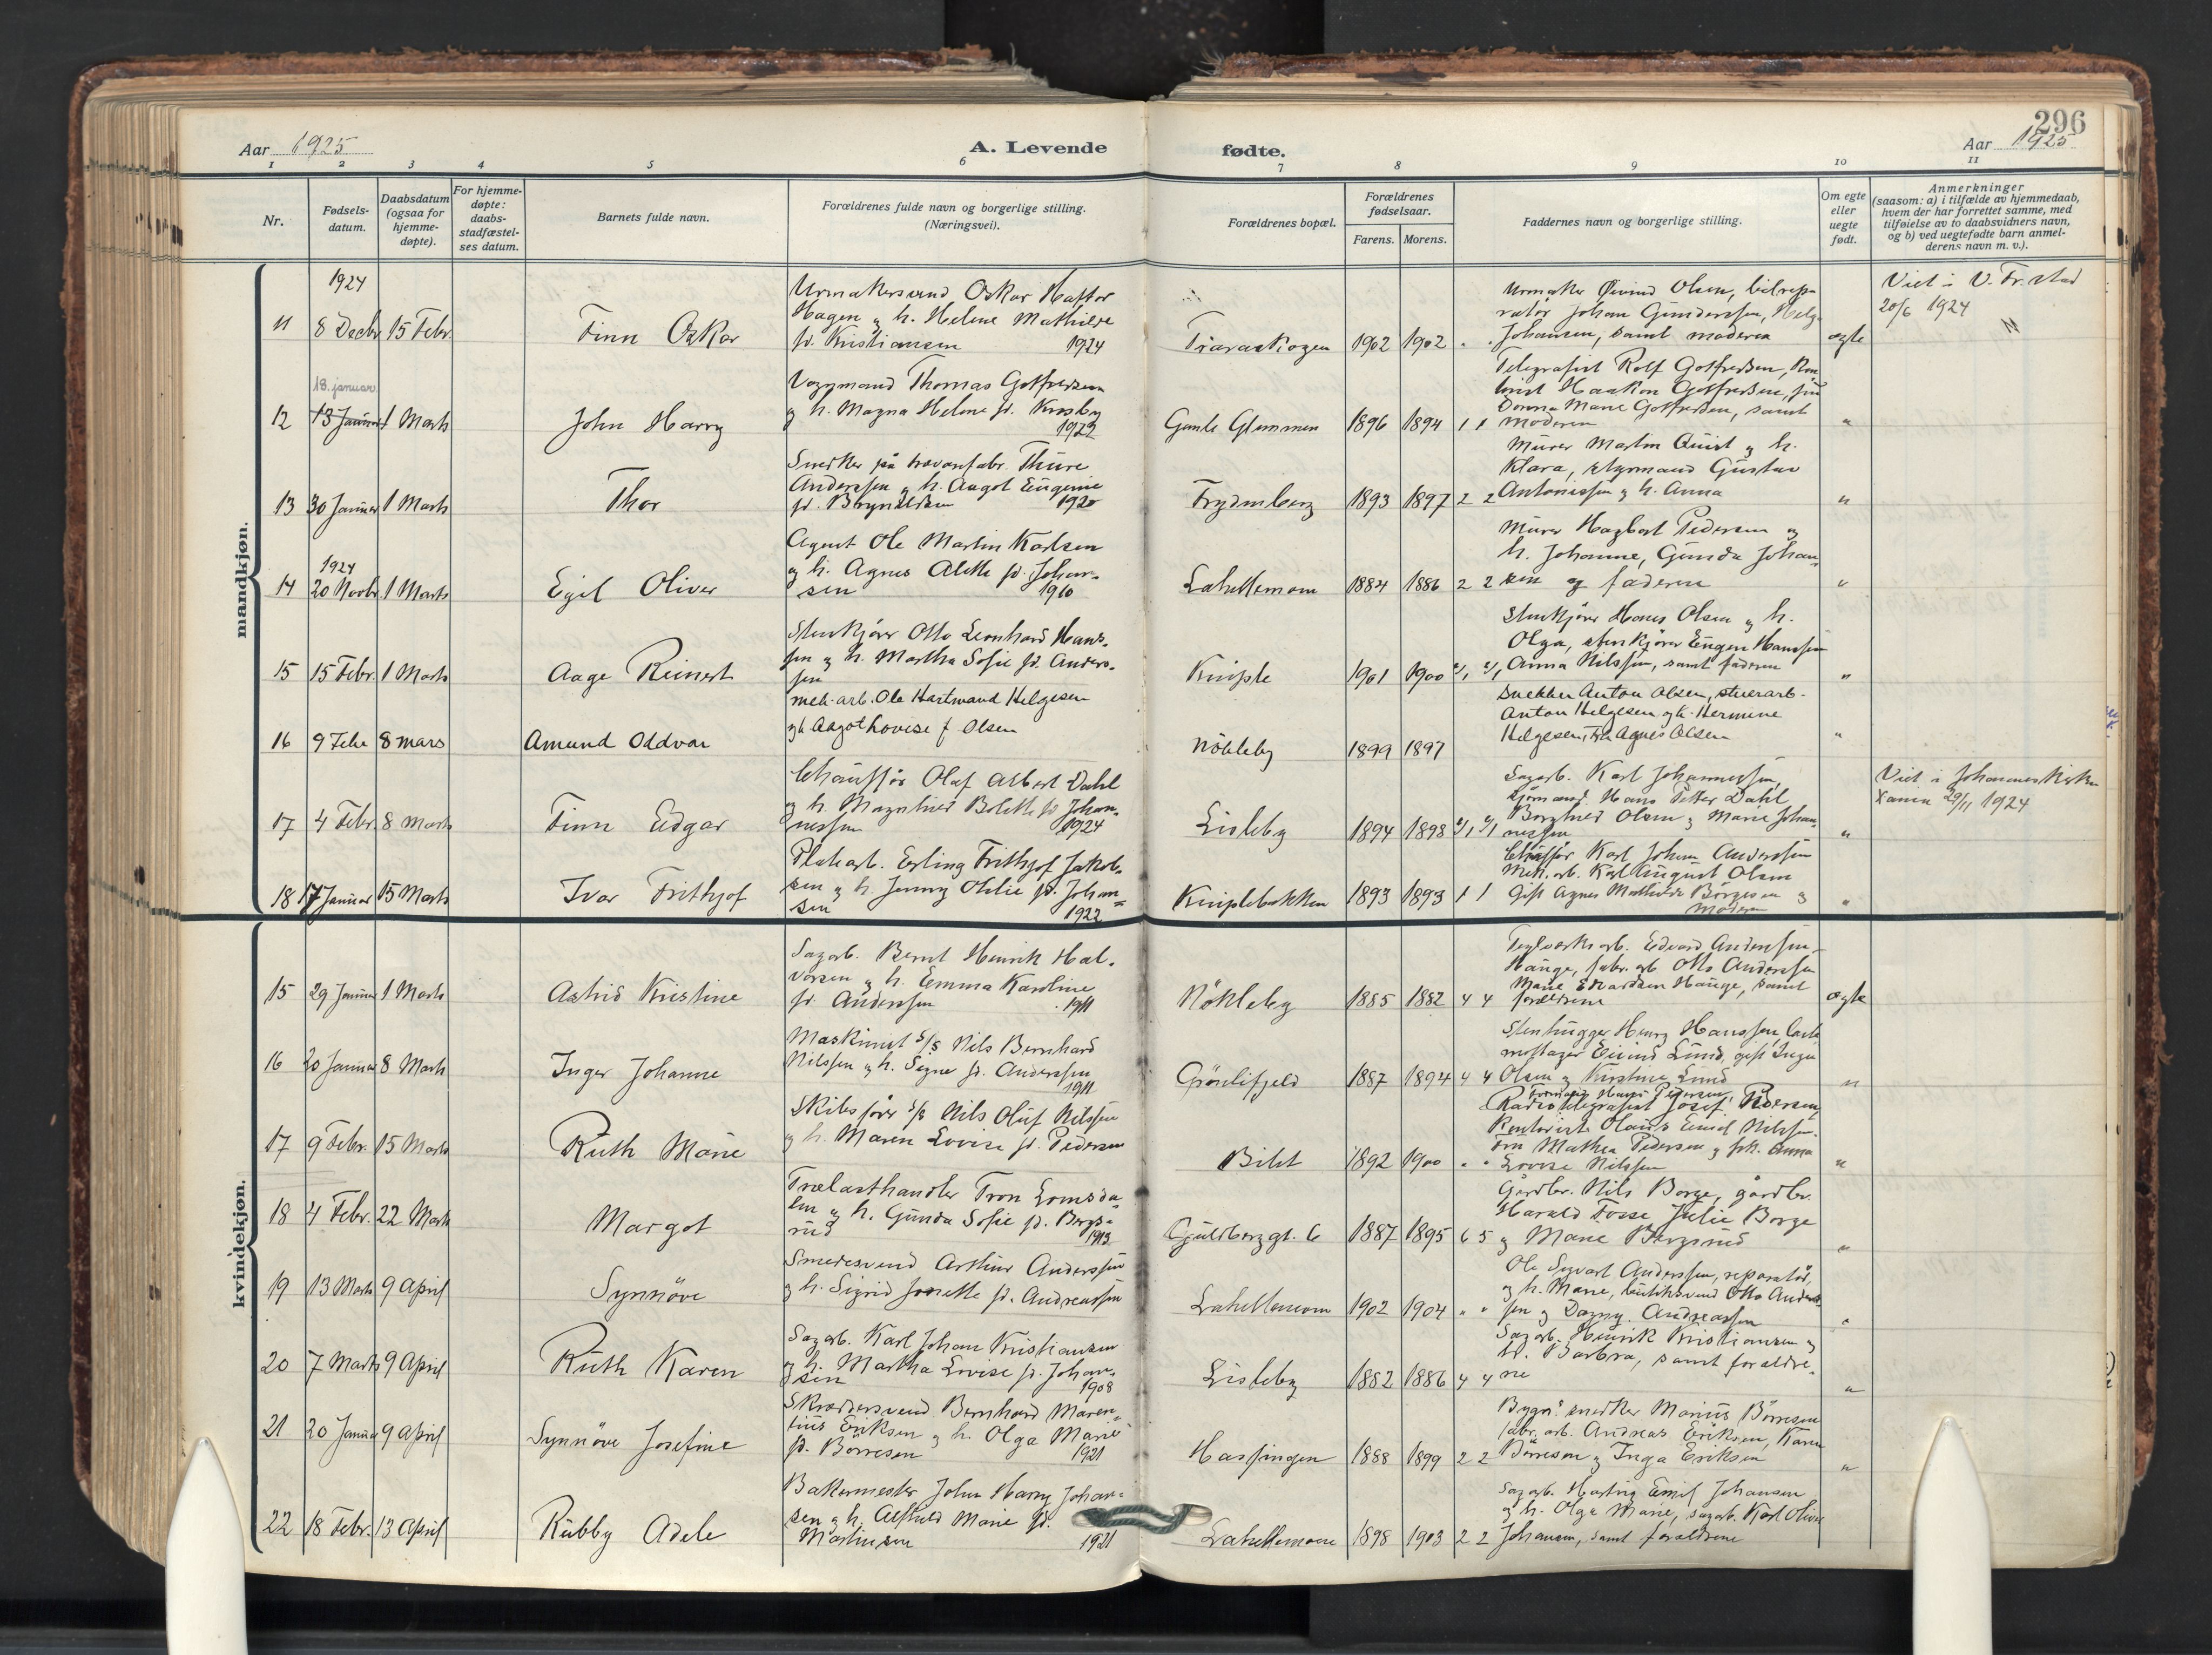 296
Aar 1925
A. Levende
fødte.
Aar 1925
1 2 3 4 5 6 7 8 9 10 11
Nr.
Fødsels-
datum.
Daabsdatum
(ogsaa for
hjemme-
døpte).
For hjemme-
døpte:
daabs-
stadfæstel-
ses datum.
Barnets fulde navn.
Forældrenes fulde navn og borgerlige stilling.
(Næringsvei).
Forældrenes bopæl.
Forældrenes
fødselsaar.
Farens. Morens.
Faddernes navn og borgerlige stilling.
Om egte
eller
uegte
født.
Anmerkninger
(saasom: a) i tilfælde av hjemmedaab,
hvem der har forrettet samme, med
tilføielse av to daabsvidners navn,
og b) ved uegtefødte barn anmel-
derens navn m. v.).
mandkjøn.
1924
11 8 Decbr 15 Febr. Finn Oskar
Urmakersvend Oskar Haftor
Hagen og h. Helene Mathilde
fd. Kristiansen 1924
Traraskogen 1902 1902 " "
Urmaker Øivind Olsen, bilrepa
ratør Johan Gundersen, Helga
Johansen, samt moderen
egte
Viet i V. Fr.stad
20/6 1924
18. januar
12 13 Januar 1 Marts John Harry
Vognmand Thomas Gotfredsen
og h. Magna Helene fd. Krosby
1922
Gamle Glemmen 1896 1894 1 1
Telegrafist Rolf Gotfredsen, Kon
torist Haakon Gotfredsen, fru
Donna Marie Gotfredsen, samt
moderen
"
13 30 Januar 1 Marts Thor
Snedker på trævarefabr. Thure
Anderssen og h. Aagot Eugenie
fd. Brynildsen 1920
Frydenberg 1893 1897 2 2
Murer Martin Quist og h.
Klara, styrmand Gustav
Antonissen og h. Anna
"
1924
14 20 Novbr. 1 Marts Egil Oliver
Agent Ole Martin Karlsen
og h. Agnes Alette fd. Johan-
sen 1910
Lahellemoen 1884 1886 2 2
Murer Hagbart Pedersen og
h. Johanne, Gunda Johan
sen og faderen
"
15 15 Febr. 1 Marts Aage Reinert
Stenkjører Otto Leonhard Hans-
sen og h. Martha Sofie fd. Anders-
sen
Kniple 1901 1900
Stenkjører Hans Olsen og h.
Olga, stenkjører Eugen Hanssen
Anna Nilssen, samt faderen
"
16 9 Febr 8 mars Amund Oddvar
mek. arb. Ole Hartmand Helgesen
og h Aagot Lovise f Olsen
Nökleby 1899 1897
Snekker Anton Olsen, stuerarb.
Anton Helgesen og h. Hermine
Helgesen, Frk Agnes Olsen
"
17 4 Febr. 8 Marts Finn Edgar
Chauffør Olaf Albert Dahl
og h. Magnhild Bolette fd Johan-
nessen 1924
Lisleby 1894 1898
Sagarb. Karl Johannessen,
Sjømand Hans Petter Dahl
Borghild Olsen og Marie Johan-
nessen
"
Viet i Johannes Kirke
Xania 29/11 1924
18 17 Januar 15 Marts Ivar Frithjof
Platearb. Erling Frithjof Jakob-
sen og h. Jenny Otilie fd. Johan-
sen 1922
Kniplebakken 1893 1893 1 1
Chauffør Karl Johan Anderssen
Mek. arb. Karl August Olsen
Gift Agnes Mathilde Børgesen og
Moderen
"
kvindekjøn.
15 29 Januar 1 Marts Astrid Kristine
Sagarb. Bernt Henrik Hal-
vorsen og h. Emma Karoline
fd. Anderssen 1911
Nökleby 1885 1882 4 4
Teglverksarb. Edvard Anderssen
Hauge, fabr. arb Otto Anderssen
Marie Edvardsen Hauge, samt
forældrene
egte
16 20 Januar 8 Marts Inger Johanne
Maskinist S/S Nils Bernhard
Nilssen og h. Signe fd. Anderssen
1911
Grönlifjeld 1887 1894 4 4
Stenhugger Henry Hanssen, laste
mottager Eivind Lund, gift Inga
Olsen og Kirstine Lund
"
17 9 Febr. 15 Marts Ruth Marie
Skibsfører S/S Nils Oluf Nilssen
og h. Maren Lovise fd. Pedersen
Bilet 1892 1900 " "
Formand Hans Pedersen,
Radiotelegrafist Josef Pedersen
Kontorist Olaus Emil Nilssen.
Fru Mathea Pedersen og frk. Anna
Lovise Nilssen
"
18 4 Febr. 22 Marts Margot
Trælasthandler Tron Lomsda
len og h. Gunda Sofie fd. Bergs-
rud 1913
Guldberggt. 6 1887 1895 6 5
Gårdbr. Nils Borge, gårdbr.
Harald Fosse, Julie Borge
og Marie Bergsrud
"
19 13 Marts 9 April Synnöve
Smedesvend Arthur Anderssen
og h. Sigrid Jonette fd. Andreassen
Lahellemoen 1902 1904 " "
Ole Sigvart Anderssen, reparatør,
og h. Marie, butiksvend Otto Anders
sen og Dagny Andreassen
"
20 7 Marts 9 April Ruth Karen
Sagarb. Karl Johan Kristiansen
og h. Martha Lovise fd. Johan-
sen 1908
Lisleby 1882 1886 4 4
Sagarb. Henrik Kristiansen og
h. Barbra, samt forældre-
ne
"
21 20 Januar 9 April Synnöve Josefine
Skræddersvend Bernhard Maren-
tius Eriksen og h. Olga Marie
fd. Börresen 1921
Hassingen 1888 1899 2 2
Bygn. snedker Marius Börresen
fabr. arb. Andreas Eriksen, Karen
Börresen og Inga Eriksen
"
22 18 Febr. 13 April Rubby Adele
Bakermester John Harry Johan-
sen og h. Alfhild Marie fd.
Martinsen 1921
Lahellemoen 1898 1903 2 2
Sagarb. Hartvig Emil Johansen
og h. Olga Marie, sagarb. Karl Oliver
Johansen, samt forældrene